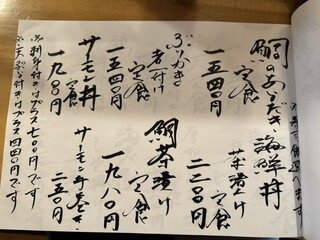 鯛のあらだき
定食
一五四〇円
海鮮丼
茶漬け
定食
二二〇〇円
ぶりかま
煮付け
定食
一五四〇円
鯛茶漬け
定食
一九八〇円
サーモン丼
定食
一九八〇円
サーモン手巻き
二五〇円
※刺身付きはプラス七〇〇円です
※天ぷら付きはプラス四四〇円です